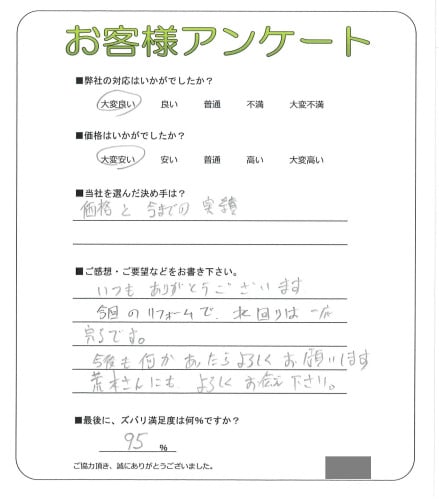 お客様アンケート
■弊社の対応はいかがでしたか？
大変良い 良い 普通 不満 大変不満
■価格はいかがでしたか？
大変安い 安い 普通 高い 大変高い
■当社を選んだ決め手は？
価格と今までの実績
■ご感想・ご要望などをお書き下さい。
いつもありがとうございます
今回のリフォームで、水回りは一応
完了です。
今後も何かあったらよろしくお願いします
荒木さんにも よろしくお伝え下さい。
■最後に、ズバリ満足度は何%ですか？
95 %
ご協力頂き、誠にありがとうございました。